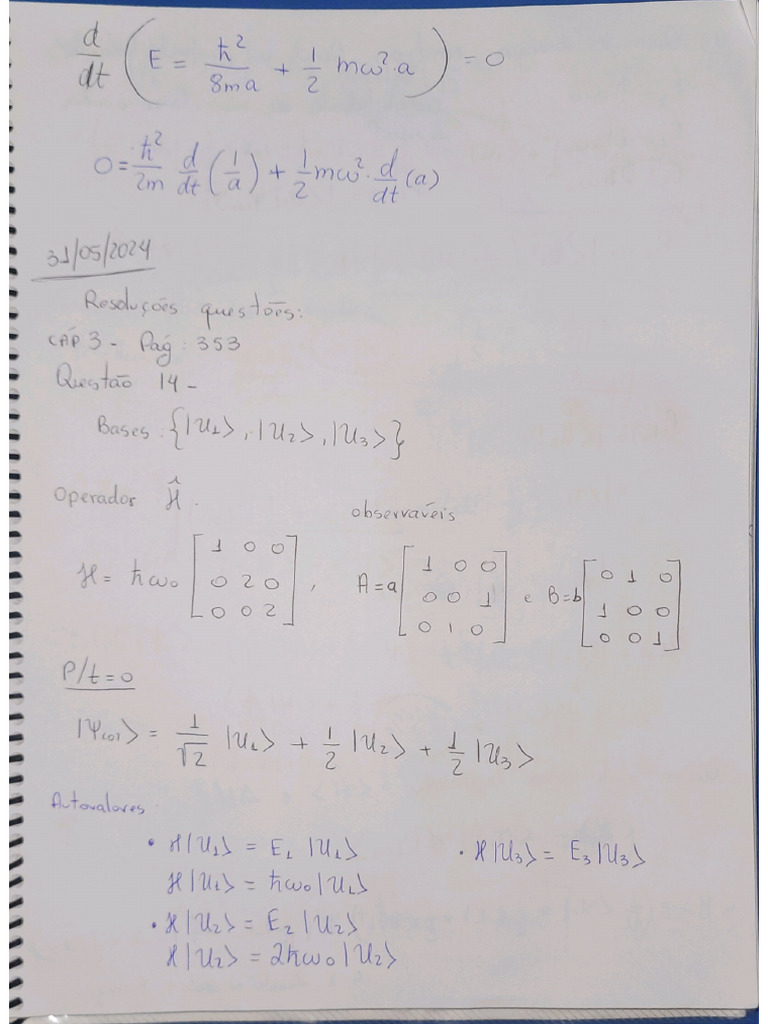 d/dt ( E = ħ²/8ma + 1/2 mω²·a ) = 0
0 = ħ²/2m d/dt (1/a) + 1/2 mω²· d/dt (a)
31/05/2024
Resoluções questões:
CÁP 3 - Pág: 353
Questão 14 -
Bases: {|U1⟩, |U2⟩, |U3⟩}
Operador Ĥ.
observavéis
H = ħω0 [1 0 0; 0 2 0; 0 0 2], A = a [1 0 0; 0 0 1; 0 1 0] e B = b [0 1 0; 1 0 0; 0 0 1]
P/t=0
|Ψ(0)⟩ = 1/√2 |U1⟩ + 1/2 |U2⟩ + 1/2 |U3⟩
Autovalores
• H|U1⟩ = E1 |U1⟩
• H|U3⟩ = E3|U3⟩
H|U1⟩ = ħω0|U1⟩
• H|U2⟩ = E2|U2⟩
H|U2⟩ = 2ħω0|U2⟩